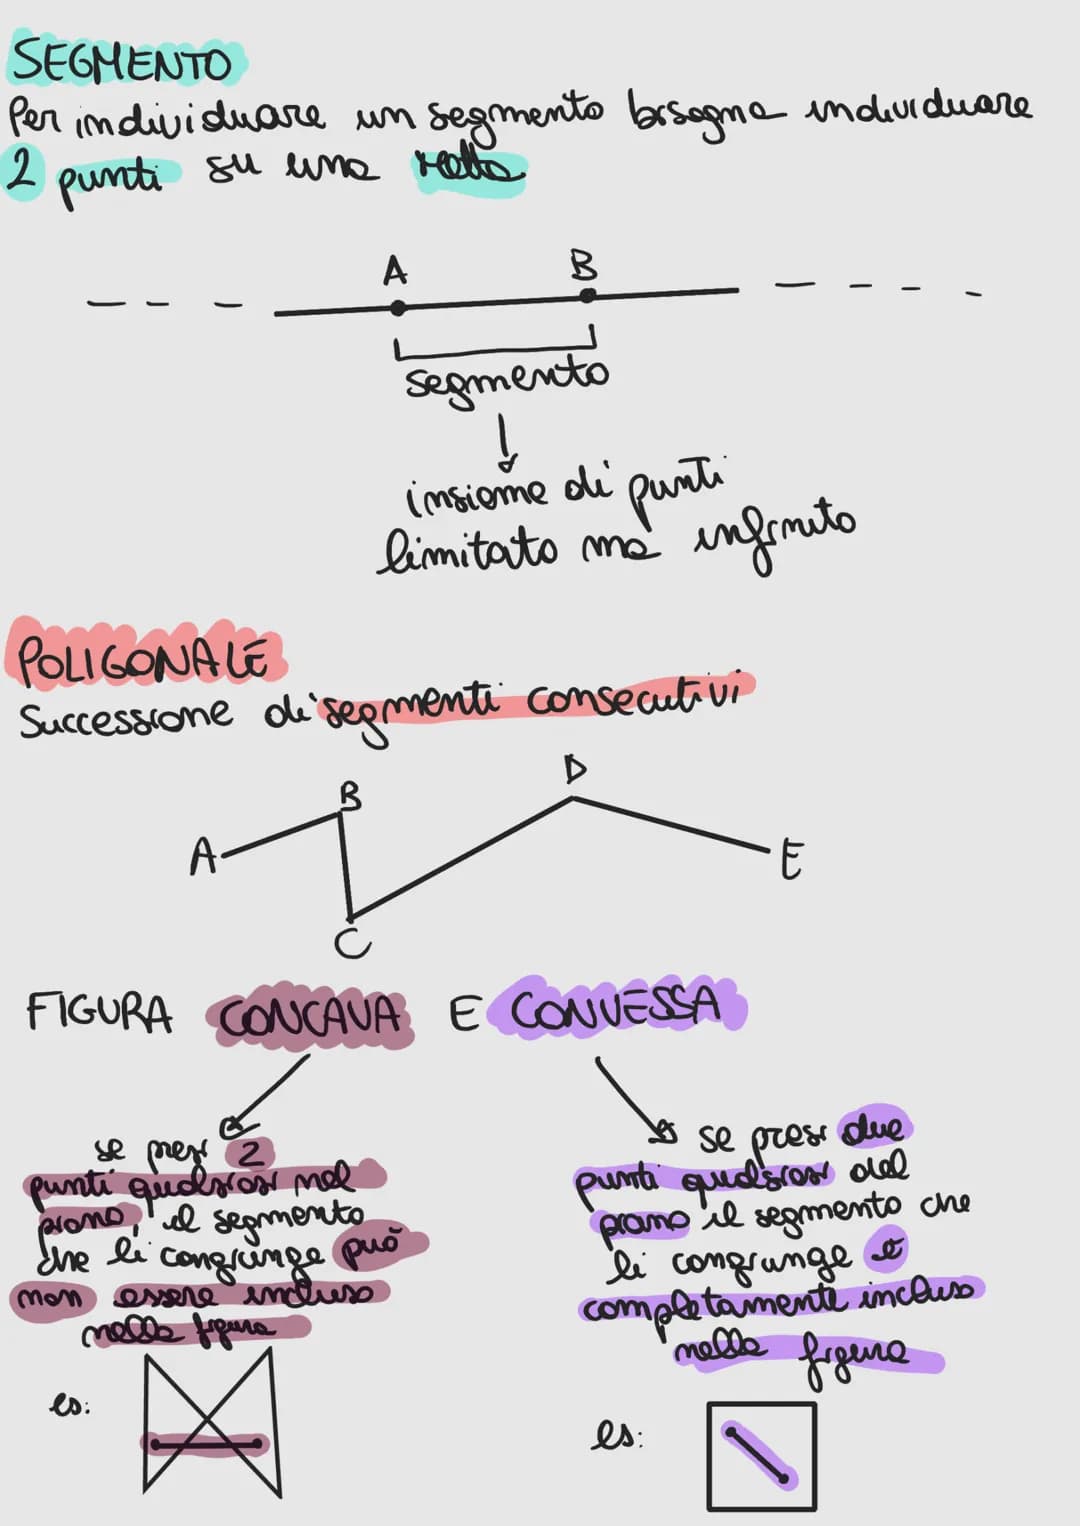 SEGMENTO
Per individuare un segmento bisogna individuare
2 punti su una retta
A B
segmento
insieme di punti
limitato ma infinito
POLIGONALE
Successione di segmenti consecutivi
D
B
A E
C
FIGURA CONCAVA E CONVESSA
se presi 2
punti qualsiasi nel
piano, il segmento
che li congiunge può
non essere incluso
nella figura
es:
se presi due
punti qualsiasi del
piano il segmento che
li congiunge è
completamente incluso
nella figura
es: